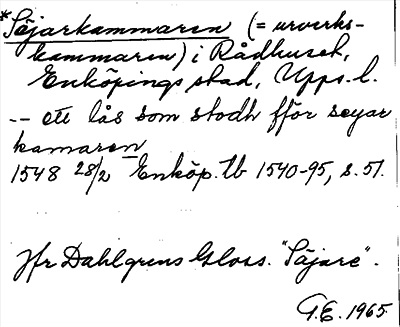 *Säjarkammaren (= urverks-
kammaren) i Rådhuset,
Enköpings stad, Upps. l.
-- ett lås som stodh fför seyar
kamaren
1548 28/2 Enköp. tb 1540-95, s. 51.
Jfr Dahlgrens Gloss. "Säjare".
G.E. 1965.